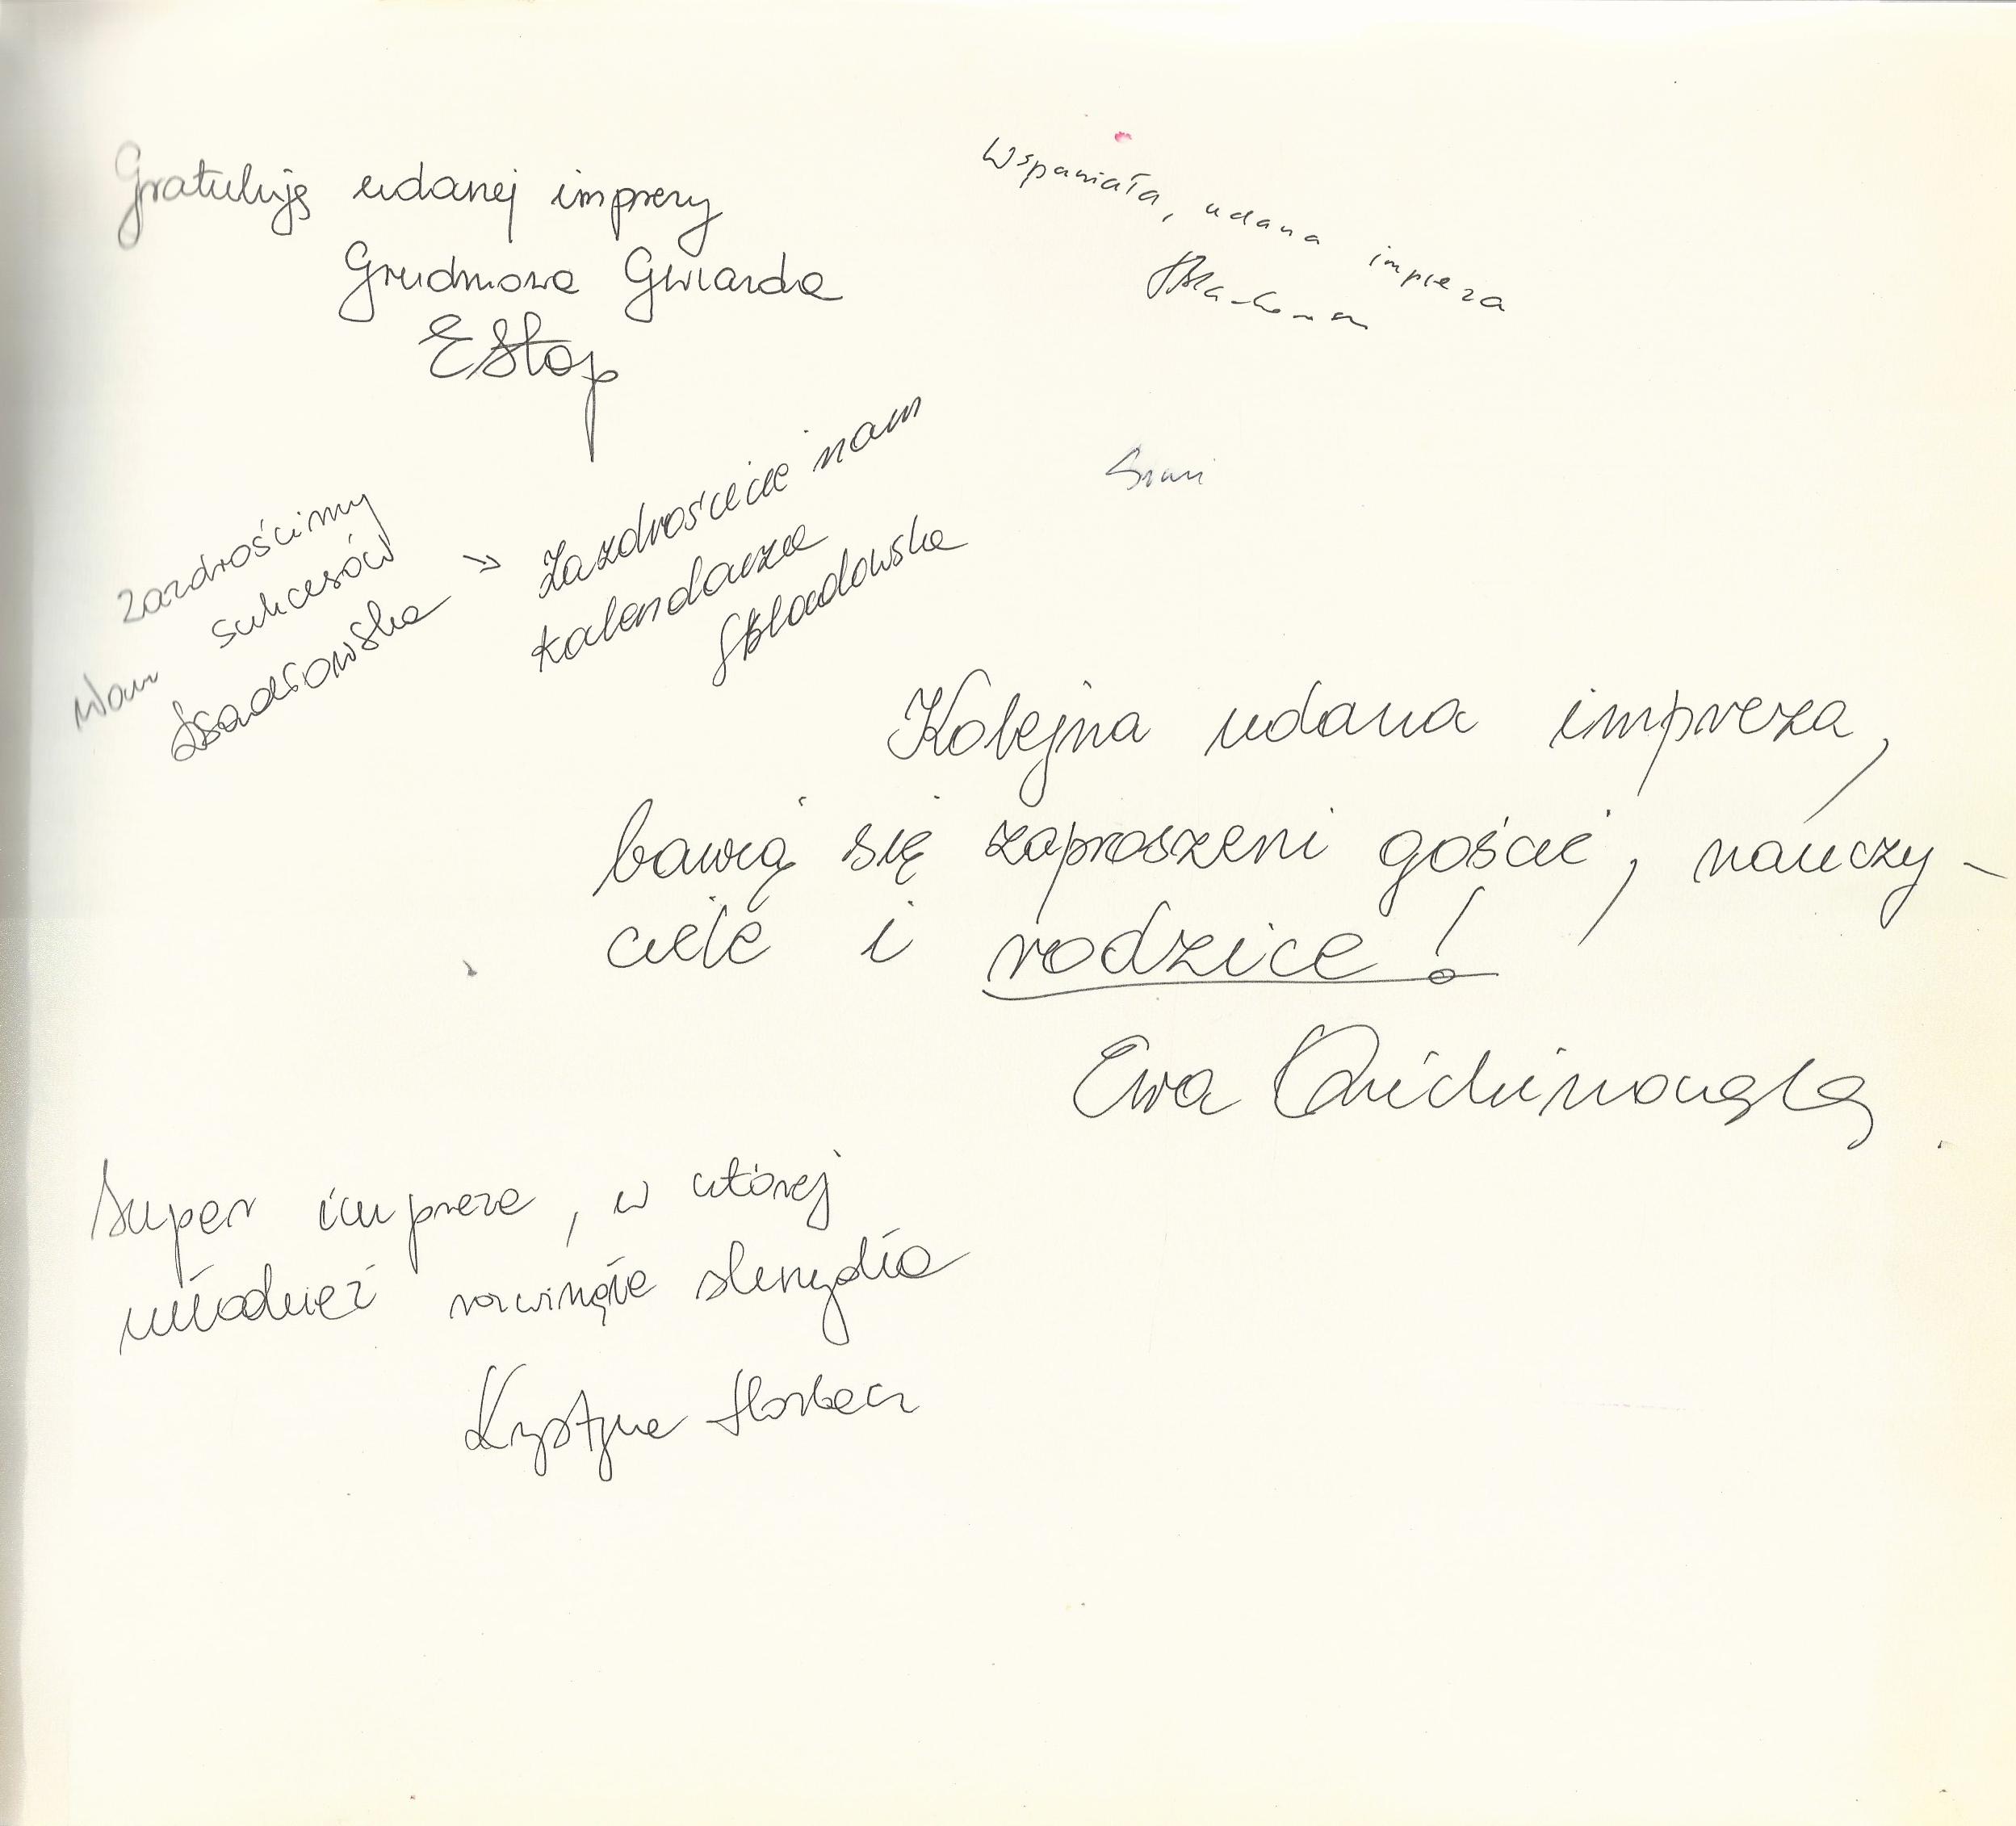 Gratuluję udanej imprezy
Grudniowa Gwiazda
EStop
Wspaniała, udana impreza
Zazdrościmy
Wam sukcesów
→ Zazdrościcie nam
kalendarza
Składowska
Kolejna udana impreza,
bawią się zaproszeni goście, nauczy-
ciele i rodzice!
Ewa
Super impreza, w której
młodzież rozwinęła skrzydła
Krystyna